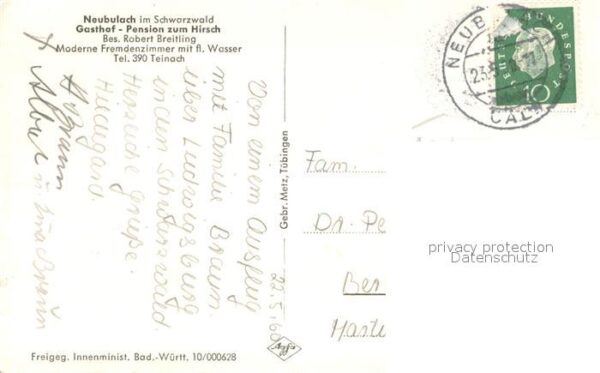 Neubulach im Schwarzwald
Gasthof - Pension zum Hirsch
Bes. Robert Breitling
Moderne Fremdenzimmer mit fl. Wasser
Tel. 390 Teinach
22.5.60
Von einem Ausflug
mit Familie Braun
über Ludwigsburg
in den Schwarzwald.
Herzliche Grüße.
Hildegard.
H. Braun
Albert u
Gebr. Metz, Tübingen
NEUB
CALW
DEUTSCHE BUNDESPOST
10
Fam.
Dr. Pe
Ber
Haste
privacy protection
Datenschutz
Agfa
Freigeg. Innenminist. Bad.-Württ. 10/000628